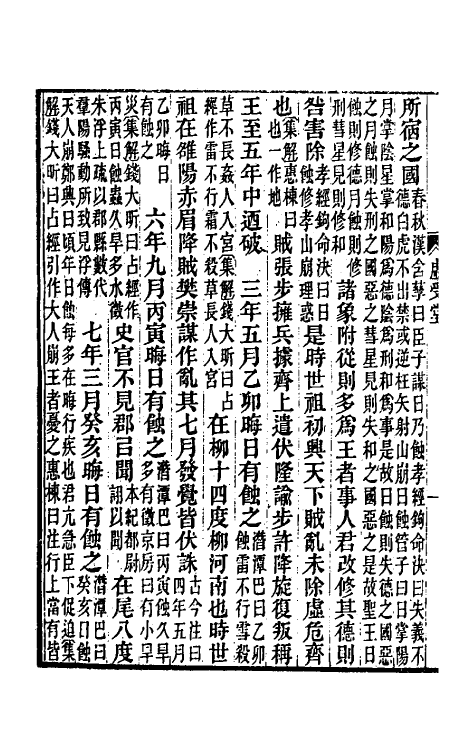 所宿之國春秋漢含孳曰臣子謀日乃蝕孝經鉤命決曰失義不德白虎不出禁或逆枉矢射山崩日蝕管子曰日掌陽
月掌陰星掌和陽爲德陰爲刑和爲事是故日蝕則失德之國惡之月蝕則失刑之國惡之彗星見則失和之國惡之是故聖王日
蝕則修德月蝕則修刑彗星見則修和諸象附從則多爲王者事人君改修其德則
咎害除孝經鉤命決曰日蝕修孝山崩理惑是時世祖初興天下賊亂未除虛危齊
也集解惠棟曰也一作地賊張步擁兵據齊上遣伏隆諭步許降旋復叛稱
王至五年中迺破 三年五月乙卯晦日有蝕之潛潭巴曰乙卯蝕雷不行雪殺
草不長姦人入宮集解錢大昕曰占經作雷不行霜不殺草長人入宮在柳十四度柳河南也時世
祖在雒陽赤眉降賊樊崇謀作亂其七月發覺皆伏誅古今注曰四年五月
乙卯晦日有蝕之 六年九月丙寅晦日有蝕之潛潭巴曰丙寅蝕久旱多有徵京房曰有小旱
災集解錢大昕曰占經作丙寅日蝕蟲久旱多水徵史官不見郡㠯聞本紀都尉詡以聞在尾八度
朱浮上疏以郡縣數代羣陽騷動所致見浮傳 七年三月癸亥晦日有蝕之潛潭巴曰癸亥日蝕
天人崩鄭興曰頃年日蝕每多在晦行疾也君亢急臣下促迫集解錢大昕曰占經引作大人崩王者憂之惠棟曰注行上當有皆
虛受堂